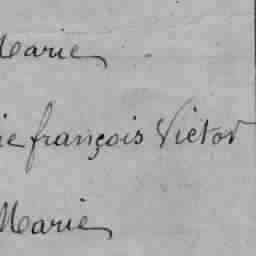 Marie
ie françois Victor
Marie